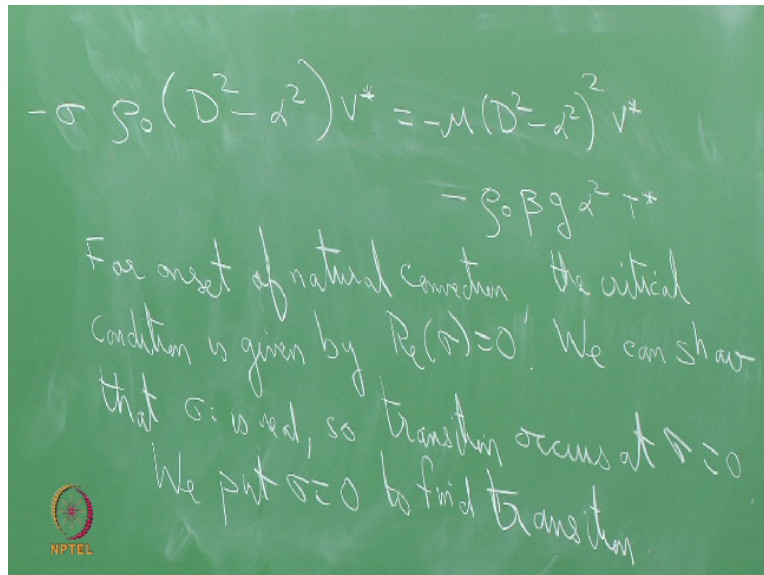 -σ ρ₀(D²-α²)v* = -μ(D²-α²)²v*
- ρ₀βgα²T*
For onset of natural convection the critical
condition is given by Re(σ)=0. We can show
that σ is real, so transition occurs at σ=0
We put σ=0 to find transition
NPTEL